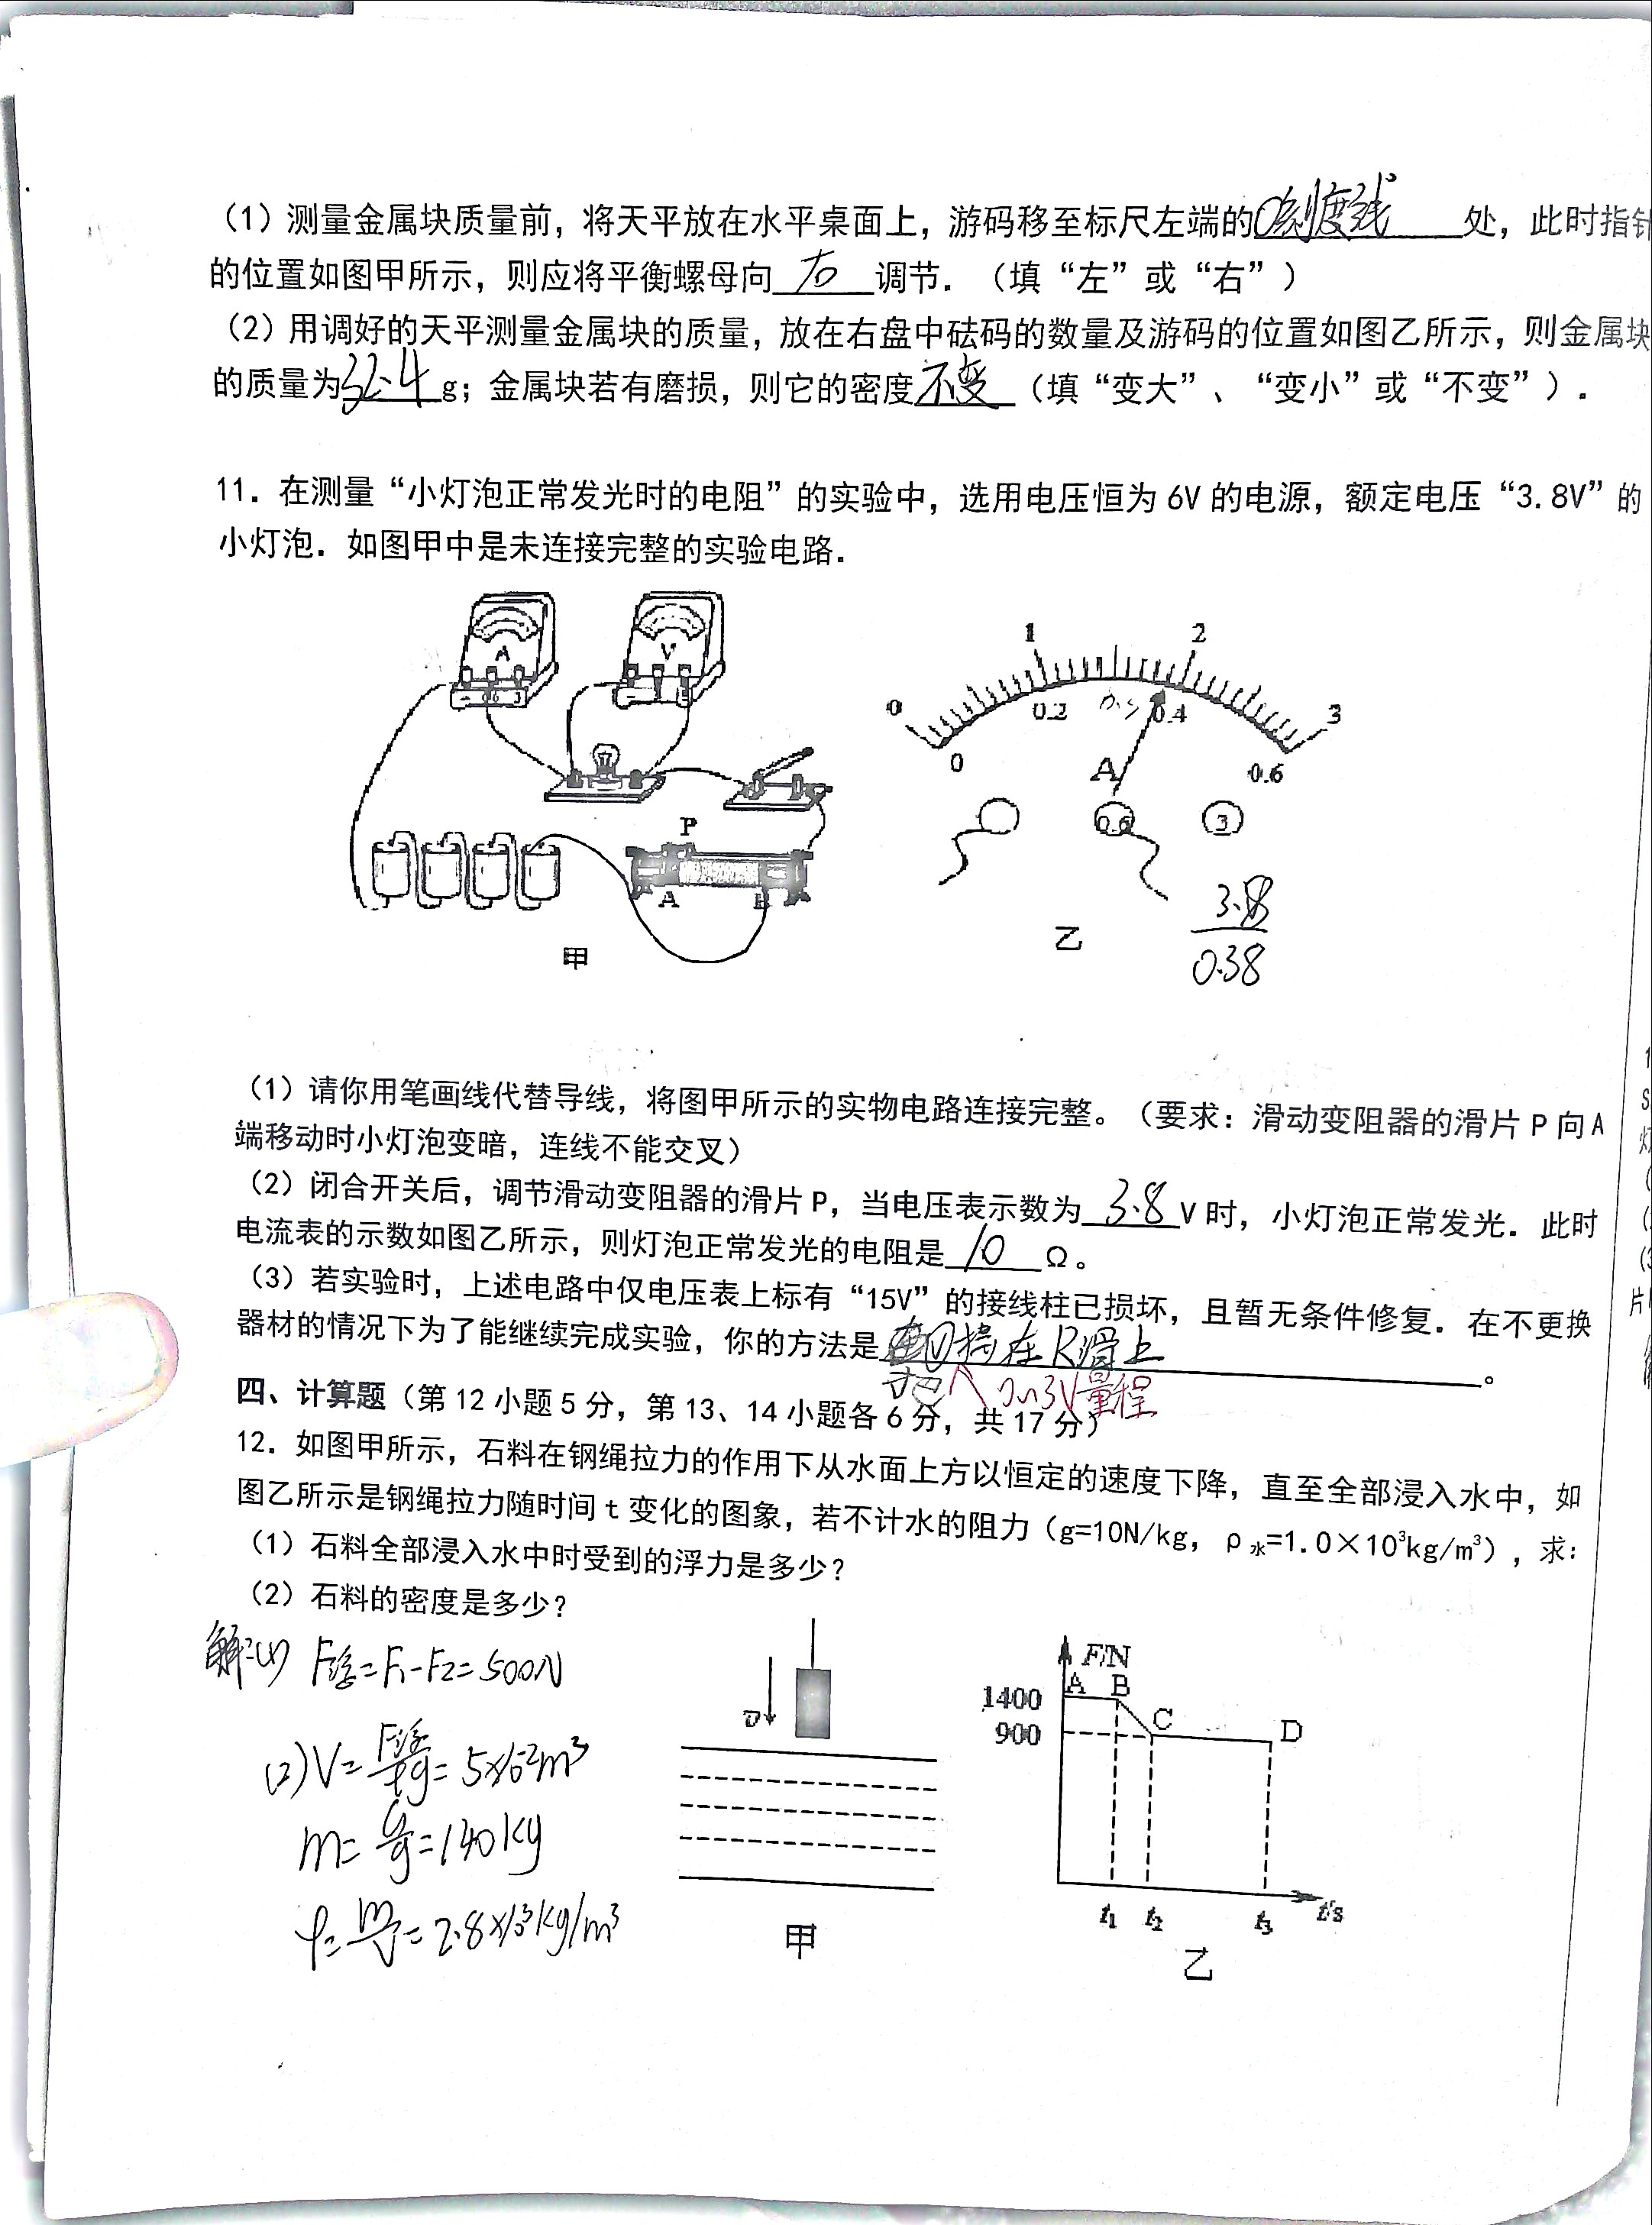 （1）测量金属块质量前，将天平放在水平桌面上，游码移至标尺左端的0刻度线处，此时指针
的位置如图甲所示，则应将平衡螺母向右调节．（填“左”或“右”）
（2）用调好的天平测量金属块的质量，放在右盘中砝码的数量及游码的位置如图乙所示，则金属块
的质量为32.4g；金属块若有磨损，则它的密度不变（填“变大”、“变小”或“不变”）．
11．在测量“小灯泡正常发光时的电阻”的实验中，选用电压恒为 6V 的电源，额定电压“3.8V”的
小灯泡．如图甲中是未连接完整的实验电路．
A
V
P
A
B
甲
0 1 2 3
0 0.2 0.4 0.6
A
0.6
3
乙
3.8
0.38
（1）请你用笔画线代替导线，将图甲所示的实物电路连接完整。（要求：滑动变阻器的滑片 P 向 A
端移动时小灯泡变暗，连线不能交叉）
（2）闭合开关后，调节滑动变阻器的滑片 P，当电压表示数为3.8V 时，小灯泡正常发光．此时
电流表的示数如图乙所示，则灯泡正常发光的电阻是10Ω。
（3）若实验时，上述电路中仅电压表上标有“15V”的接线柱已损坏，且暂无条件修复．在不更换
器材的情况下为了能继续完成实验，你的方法是接在R滑上。
3V量程
四、计算题（第 12 小题 5 分，第 13、14 小题各 6 分，共 17 分）
12．如图甲所示，石料在钢绳拉力的作用下从水面上方以恒定的速度下降，直至全部浸入水中，如
图乙所示是钢绳拉力随时间 t 变化的图象，若不计水的阻力（g=10N/kg，ρ水=1.0×10³kg/m³），求：
（1）石料全部浸入水中时受到的浮力是多少？
（2）石料的密度是多少？
解:(1) F浮=F₁-F₂=500N
(2)V=F浮/ρg=5×10⁻²m³
m=G/g=140kg
ρ=m/V=2.8×10³kg/m³
υ
甲
F/N
1400
900
A B
C
D
t₁ t₂ t₃ t/s
乙